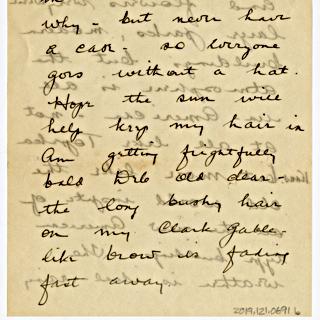 in
why - but never have
a case - so everyone
goes without a hat.
Hope the sun will
help keep my hair in
Am getting frightfully
bald Deb old dear -
the long bushy hair
on my Clark Gable-
like brow is fading
fast away.
2019.121.0691 b